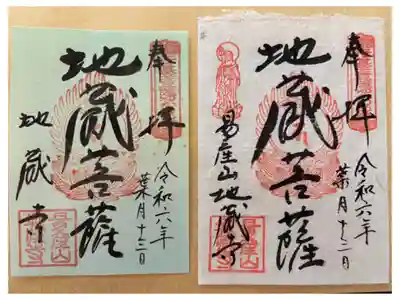 奉拝
令和六年
葉月十二日
地蔵菩薩
地蔵寺
奉拝
令和六年
葉月十二日
地蔵菩薩
易産山地蔵寺